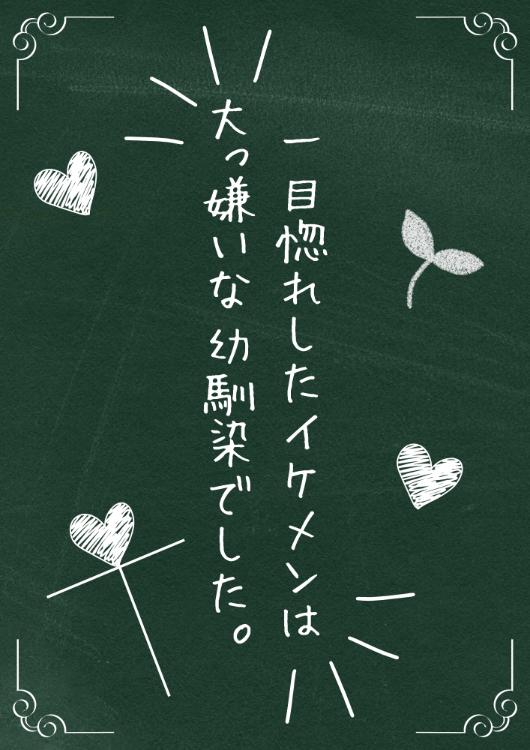 一目惚れしたイケメンは
大っ嫌いな幼馴染でした。